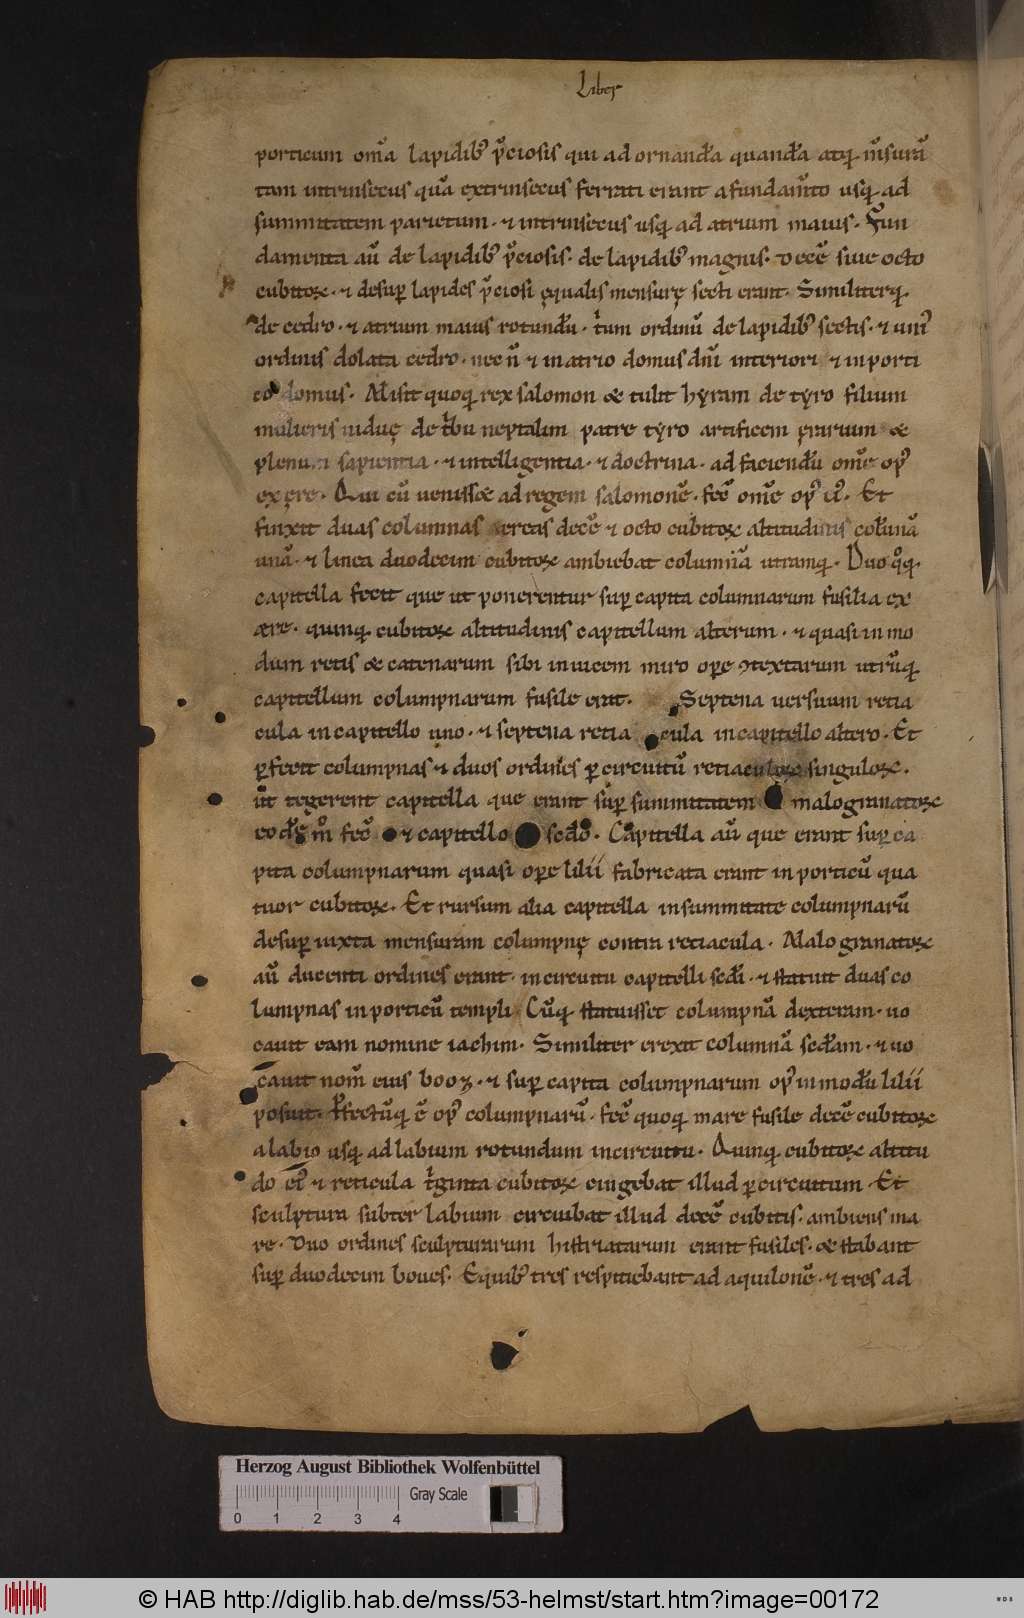 Liber
porticum om̅a lapidib; p̅ciosis qui ad ornanda̅ quanda̅ atq; m̅sura̅
tam intrinsecus qua̅ extrinsecus serrati erant a fundam̅to usq; ad
summitatem parietum · ⁊ intrinsecus usq; ad atrium maius · Fun
damenta au̅ de lapidib; p̅ciosis · de lapidib; magnis · dece̅ siue octo
cubitoꝝ · ⁊ desup̱ lapides p̅ciosi ęqualis mensurę secti erant · Similiterq;
de cedro · ⁊ atrium maius rotundu̅ · t̅um ordinu̅ de lapidib; sectis · ⁊ uni᷒
ordinis dolata cedro · nec n̅ ⁊ in atrio domus dn̅i interiori ⁊ in porti
co domus · Misit quoq; rex salomon & tulit hẏram de tẏro filium
mulieris uiduę de t̅bu neptalim patre tẏro artificem ęrarium &
plenum sapientia · ⁊ intelligentia · ⁊ doctrina · ad faciendu̅ om̅e op᷒
ex ęre · Qui cu̅ uenisset ad regem salomone̅ · fec̅ om̅e op᷒ ei᷒ · Et
finxit duas columnas aereas dece̅ ⁊ octo cubitoꝝ altitudinis colu̅na̅
una̅ · ⁊ linea duodecim cubitoꝝ ambiebat column̅a̅ utramq; · Duo q̊q;
capitella fecit que ut ponerentur sup̱ capita columnarum fusilia ex
ære · quinq; cubitoꝝ altitudinis capitellum alterum · ⁊ quasi in mo
dum retis & catenarum sibi inuicem miro ope ꝯtextarum utru̅q;
capitellum columpnarum fusile erat · Septena uersuum retia
cula in capitello uno · ⁊ septena retia cula in capitello altero · Et
ꝑfecit columpnas ⁊ duos ordines ꝑ circuitu̅ retiaculoꝝ singuloꝝ ·
ut tegerent capitella que erant sup̱ summitatem malogranatoꝝ
eode̅ m̊ fec̅ ⁊ capitello sc̅do · Capitella au̅ que erant sup̱ ca
pita columpnarum quasi ope lilii fabricata erant in porticu̅ qua
tuor cubitoꝝ · Et rursum alia capitella in summitate columpnaru̅
desup̱ iuxta mensuram columpnę contra retiacula · Malogranatoꝝ
au̅ ducenti ordines erant · in circuitu capitelli sc̅di · ⁊ statuit duas co
lumpnas in porticu̅ templi · Cu̅q; statuisset columpna̅ dexteram · uo
cauit eam nomine iachim · Similiter erexit columna̅ sc̅dam · ⁊ uo
cauit nom̅ eius booz · ⁊ sup̱ capita columpnarum op᷒ in modu̅ lilii
posuit · P̱fectu̅q; e̅ op᷒ columpnaru̅ · fec̅ quoq; mare fusile dece̅ cubitoꝝ
a labio usq; ad labium rotundum in circuitu · Quinq; cubitoꝝ altitu
do ei᷒ ⁊ reticula t̅ginta cubitoꝝ cingebat illud ꝑ circuitum · Et
sculptura subter labium circuibat illud dece̅ cubitis · ambiens ma
re · Duo ordines sculpturarum histriatarum erant fusiles · & stabant
sup̱ duodecim boues · E quib; tres respiciebant ad aquilone̅ · ⁊ tres ad
Herzog August Bibliothek Wolfenbüttel
Gray Scale
0 1 2 3 4
© HAB http://diglib.hab.de/mss/53-helmst/start.htm?image=00172